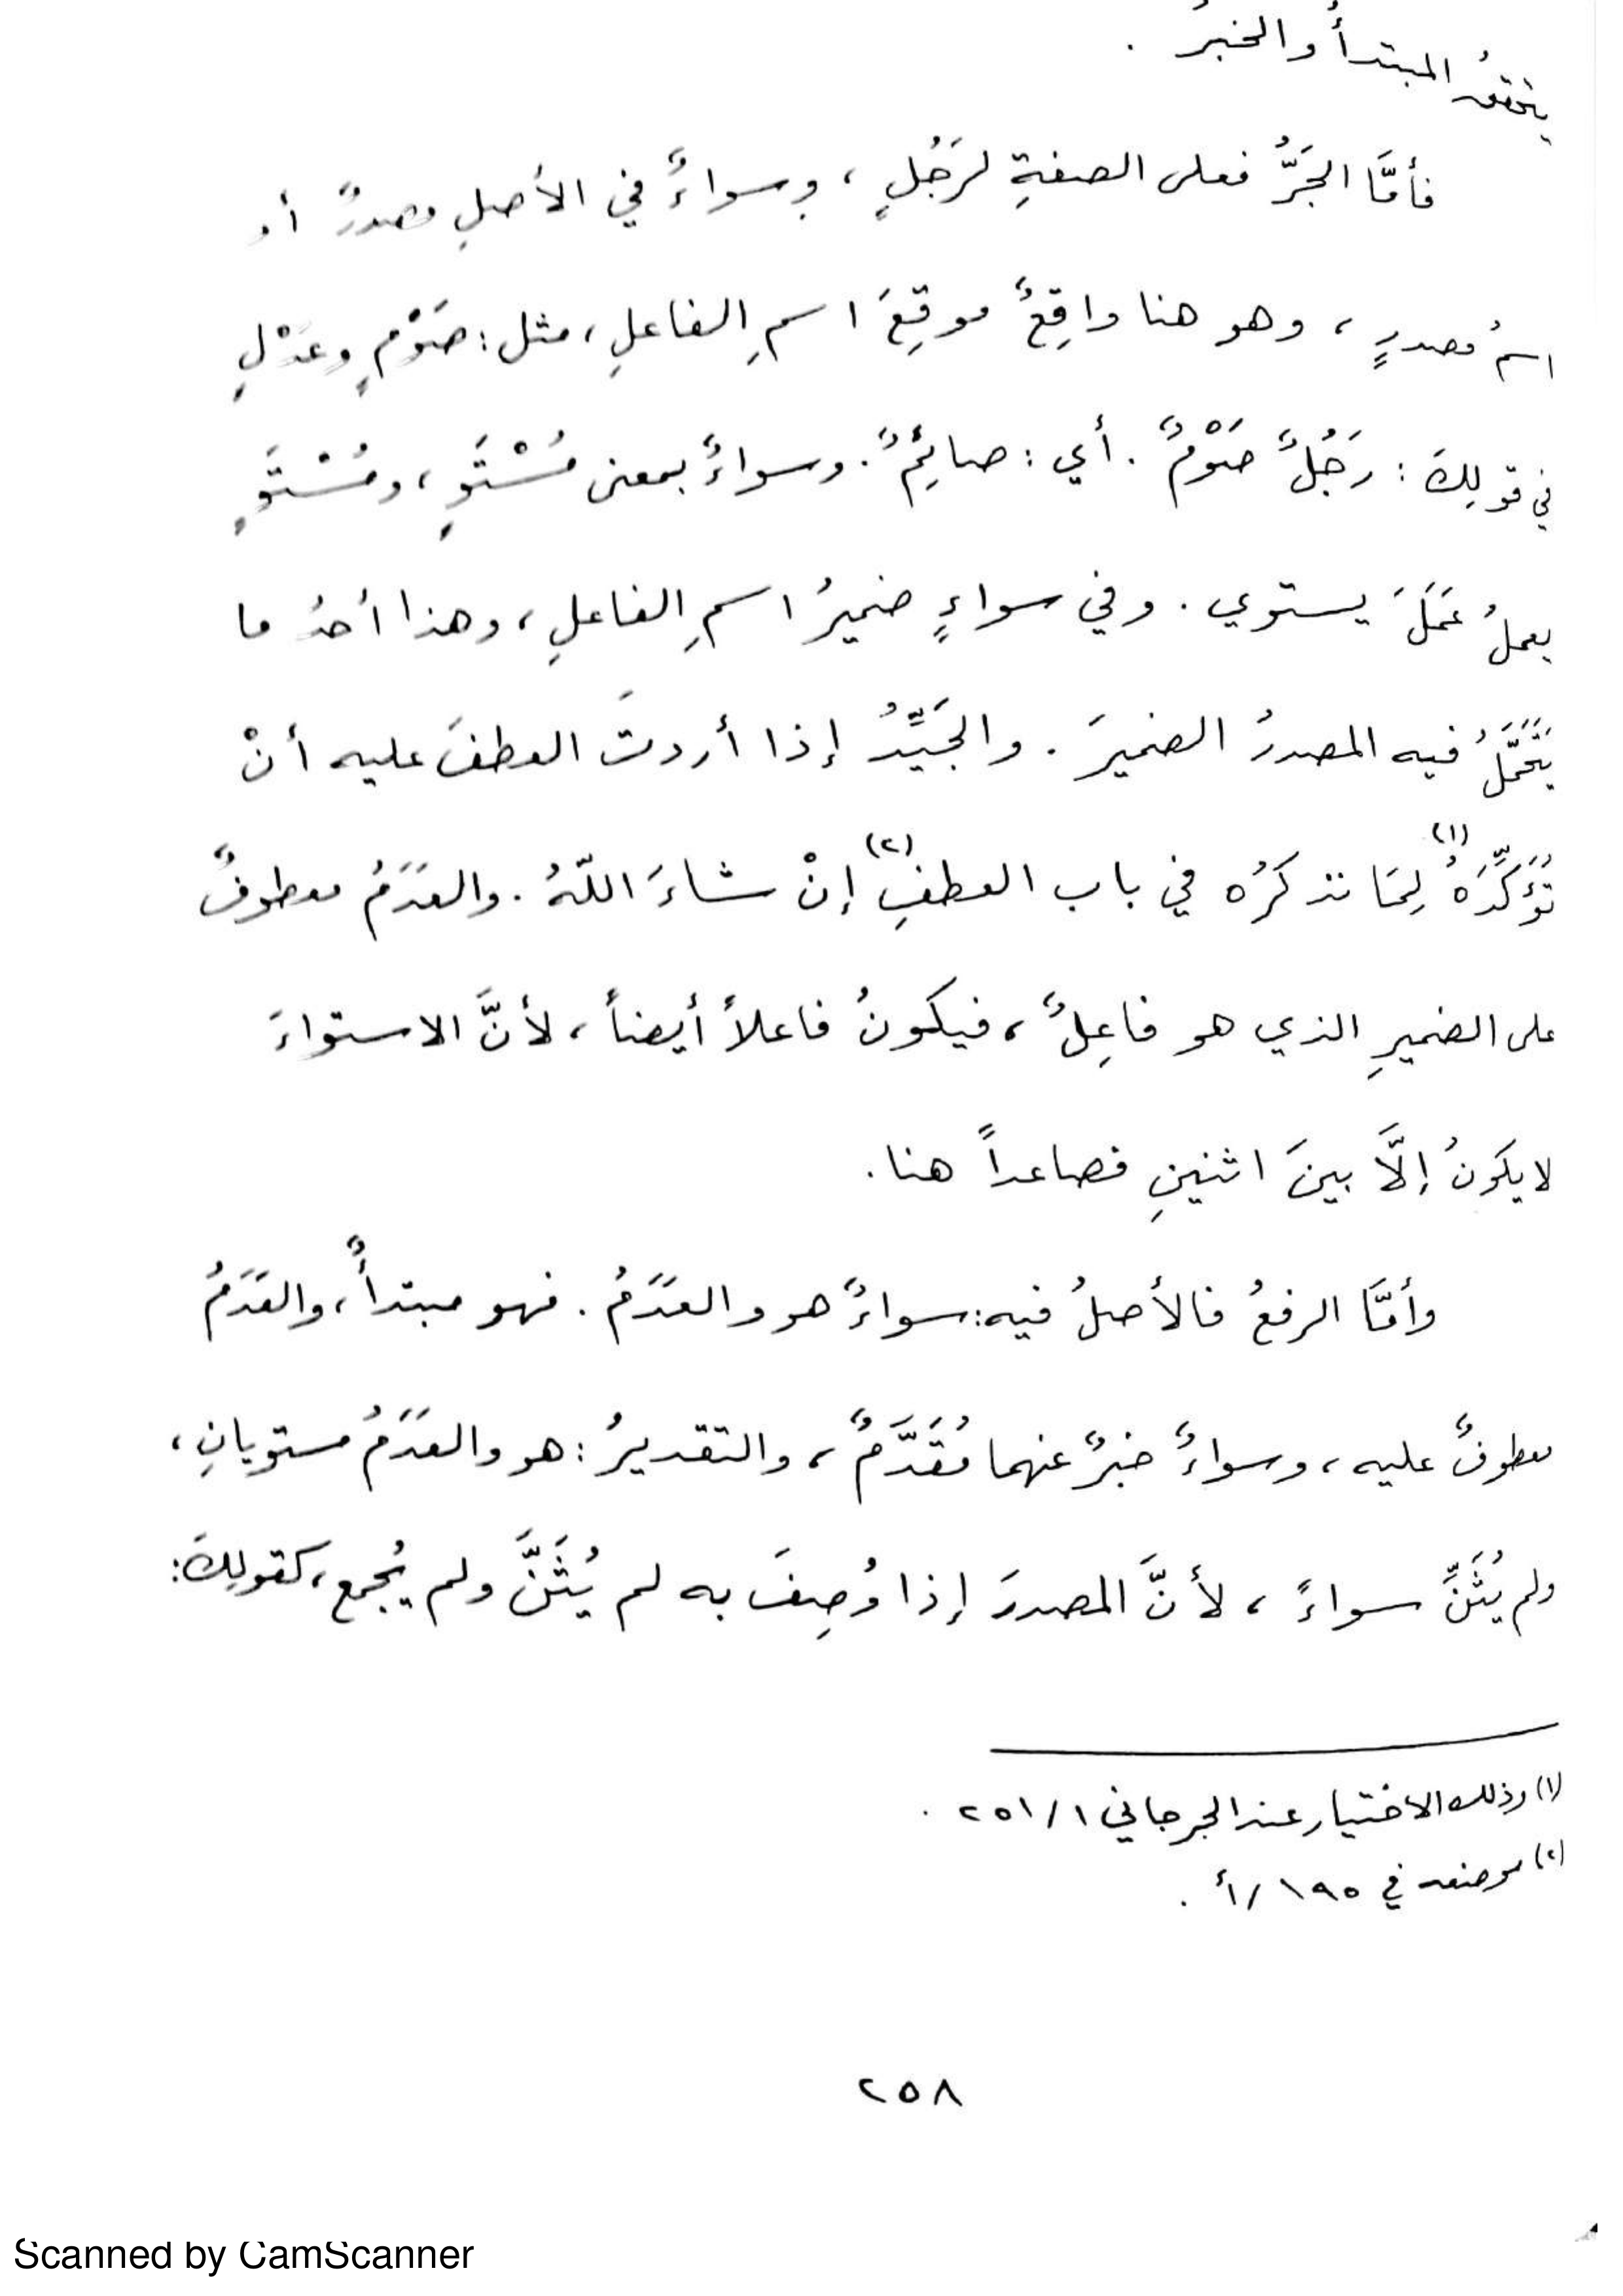 يتحققُ المبتدأُ والخبرُ .
فأمَّا الجَرُّ فعلى الصفةِ لرَجُلٍ ، وسواءٌ في الأصلِ مصدرٌ أو
اسمُ مصدرٍ ، وهو هنا واقِعٌ موقِعَ اسمِ الفاعلِ ، مثل : صَوْمٍ وعَدْلٍ
في قولِكَ : رَجُلٌ صَوْمٌ . أي : صائِمٌ . وسواءٌ بمعنى مُسْتَوٍ ، ومُسْتَوٍ
يعملُ عَمَلَ يستوي . وفي سواءٍ ضميرُ اسمِ الفاعلِ ، وهذا أحدُ ما
يَتَحَمَّلُ فيه المصدرُ الضميرَ . والجَيِّدُ إذا أردتَ العطفَ عليه أنْ
تُؤَكِّدَهُ (١) لِمَا نذكرُه في باب العطفِ (٢) إنْ شاءَ اللّهُ . والعَدَمُ معطوفٌ
على الضميرِ الذي هو فاعِلٌ ، فيكونُ فاعلاً أيضاً ، لأنَّ الاستواءَ
لايكونُ إلَّا بينَ اثنينِ فصاعداً هنا .
وأمَّا الرفعُ فالأصلُ فيه : سواءٌ هو والعَدَمُ . فهو مبتدأٌ ، والعَدَمُ
معطوفٌ عليه ، وسواءٌ خبرٌ عنهما مُقَدَّمٌ ، والتقديرُ : هو والعَدَمُ مستويانِ ،
ولم يُثَنِّ سواءً ، لأنَّ المصدرَ إذا وُصِفَ به لم يُثَنَّ ولم يُجمع ، كقولِكَ :
(١) وذلك الاختيار عند الجرجاني ١ / ٢٥١ .
(٢) موضعه في ١٩٥ / أ .
٢٥٨
Scanned by CamScanner